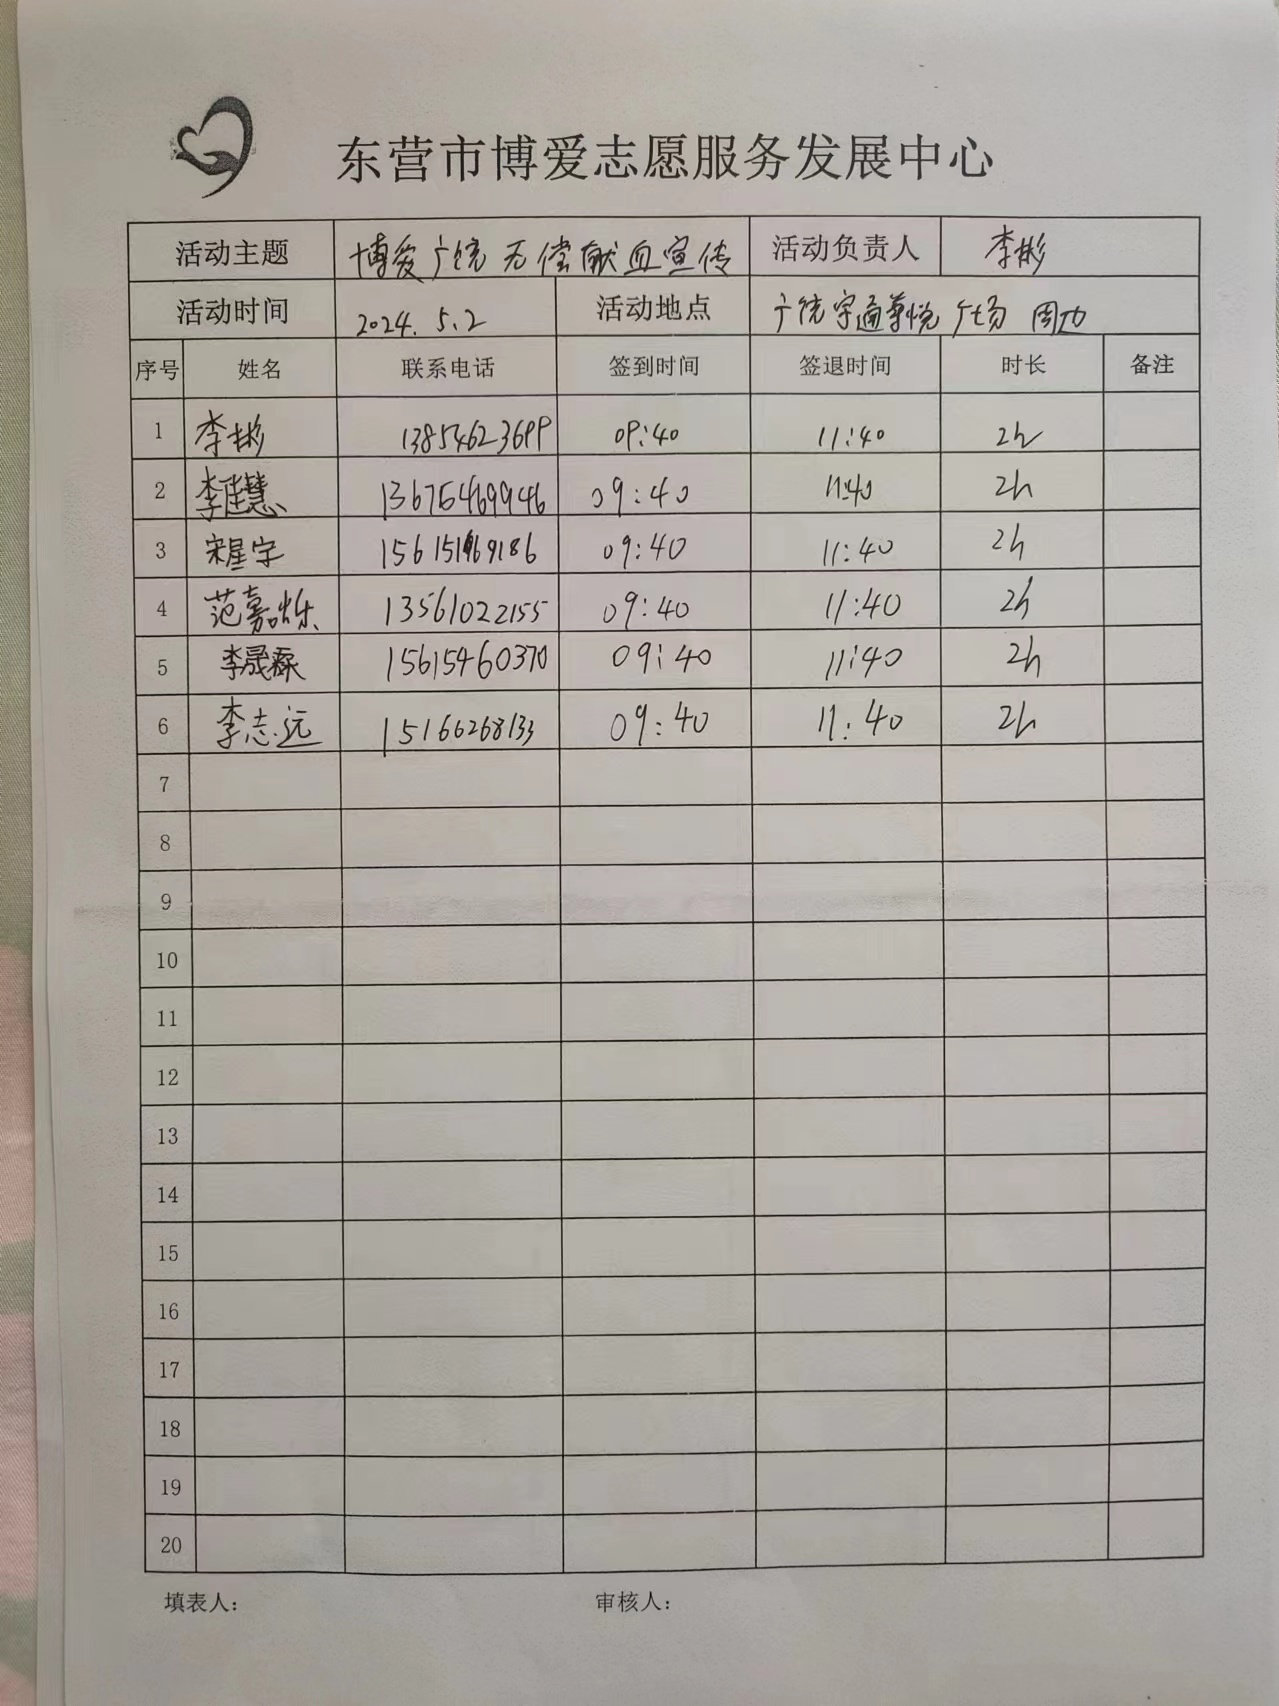 东营市博爱志愿服务发展中心
活动主题 博爱广饶 无偿献血宣传 活动负责人 李彬
活动时间 2024.5.2 活动地点 广饶宇通尊悦广场 周边
序号 姓名 联系电话 签到时间 签退时间 时长 备注
1 李彬 13854623699 09:40 11:40 2h
2 李佳慧 13675469946 09:40 11:40 2h
3 宋星宇 09:40 11:40 2h
4 范嘉烁 13561022155 09:40 11:40 2h
5 李晟 15615460370 09:40 11:40 2h
6 李志远 15166268133 09:40 11:40 2h
7
8
9
10
11
12
13
14
15
16
17
18
19
20
填表人: 审核人: